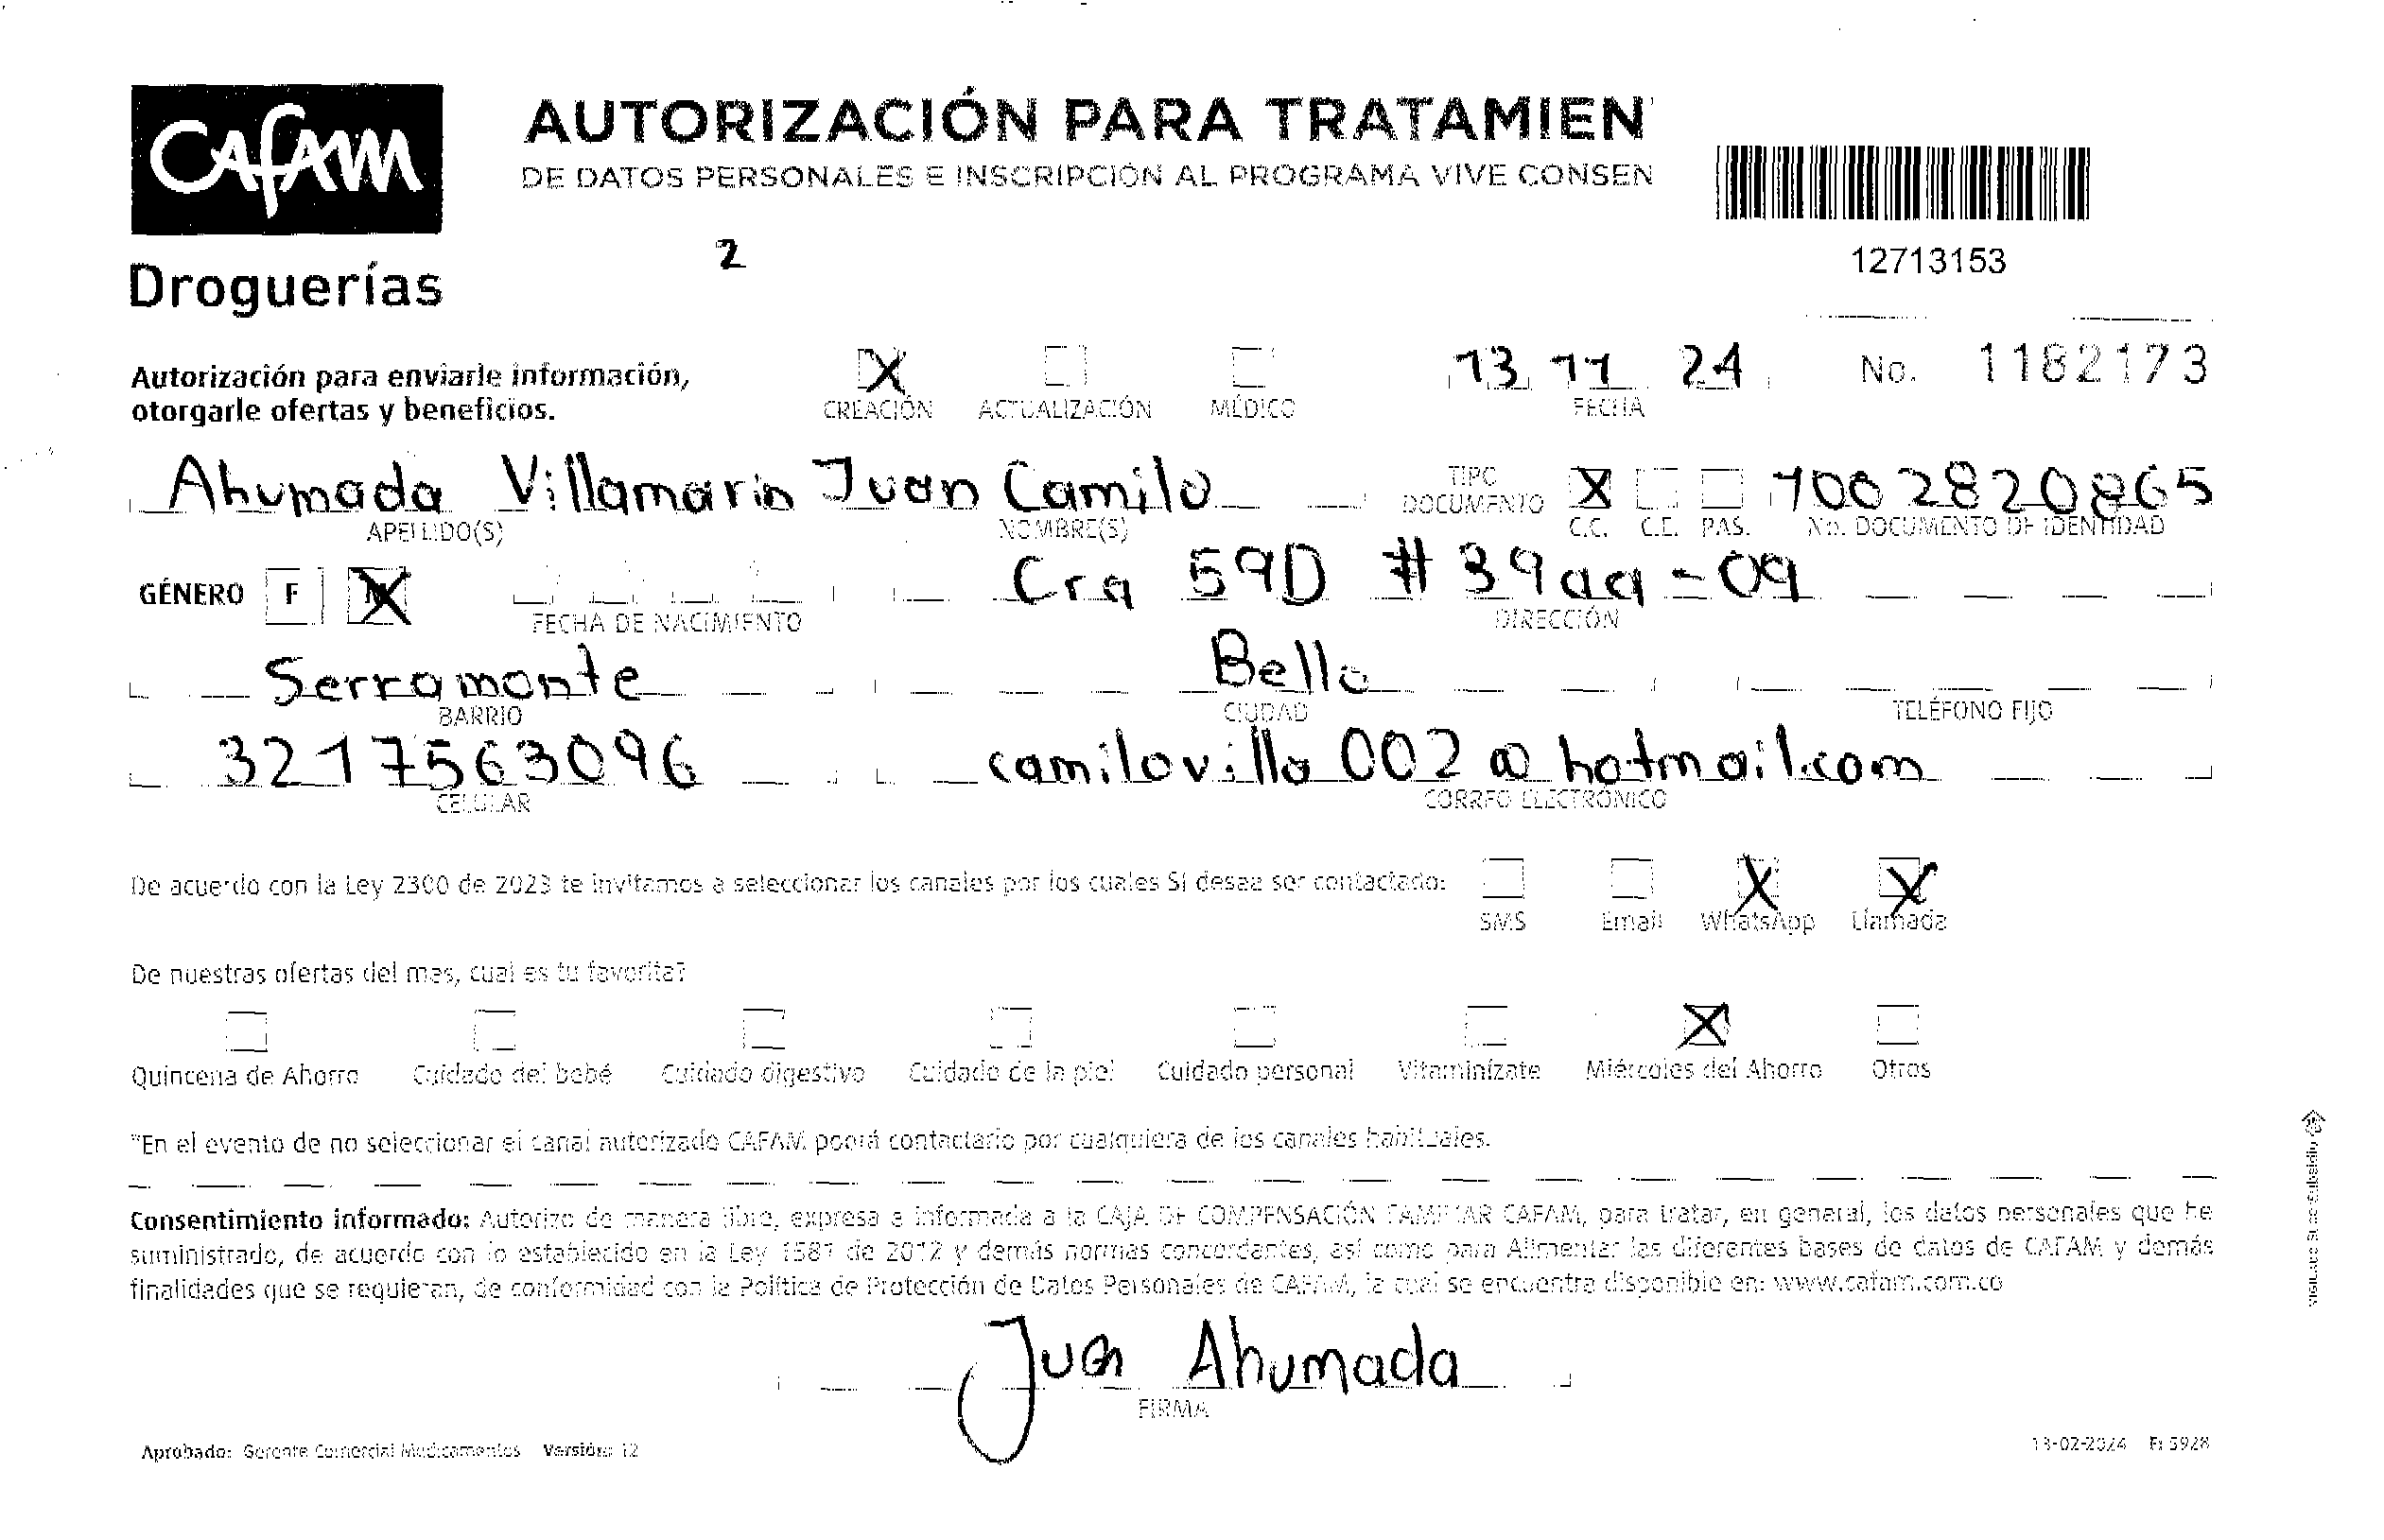 CAFAM
Droguerías
AUTORIZACIÓN PARA TRATAMIEN
DE DATOS PERSONALES E INSCRIPCIÓN AL PROGRAMA VIVE CONSEN
12713153
2
Autorización para enviarle información,
otorgarle ofertas y beneficios.
X CREACIÓN ACTUALIZACIÓN MÉDICO
13 11 24
FECHA
No. 1182173
Ahumada Villamarin Juan Camilo
APELLIDO(S) NOMBRE(S)
TIPO DOCUMENTO X C.C. C.E. PAS.
1002820865
No. DOCUMENTO DE IDENTIDAD
GÉNERO F M X
FECHA DE NACIMIENTO
Cra 59D # 39aa - 09
DIRECCIÓN
Serramonte Bello
BARRIO CIUDAD TELÉFONO FIJO
3217563096 camilovilla002@hotmail.com
CELULAR CORREO ELECTRÓNICO
De acuerdo con la Ley 2300 de 2023 te invitamos a seleccionar los canales por los cuales SI desea ser contactado:
SMS Email X WhatsApp X Llamada
De nuestras ofertas del mes, cual es tu favorita?
Quincena de Ahorro Cuidado del bebé Cuidado digestivo Cuidado de la piel Cuidado personal Vitaminízate X Miércoles del Ahorro Otros
*En el evento de no seleccionar el canal autorizado CAFAM podrá contactarlo por cualquiera de los canales habituales.
Consentimiento informado: Autorizo de manera libre, expresa e informada a la CAJA DE COMPENSACIÓN FAMILIAR CAFAM, para tratar, en general, los datos personales que he
suministrado, de acuerdo con lo establecido en la Ley 1581 de 2012 y demás normas concordantes, así como para Alimentar las diferentes bases de datos de CAFAM y demás
finalidades que se requieran, de conformidad con la Política de Protección de Datos Personales de CAFAM, la cual se encuentra disponible en: www.cafam.com.co
Juan Ahumada
FIRMA
Aprobado: Gerente Comercial Medicamentos Versión: 12
13-02-2024 F: 5928